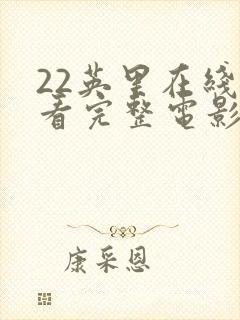 22英里在线
看完整电影
康采恩